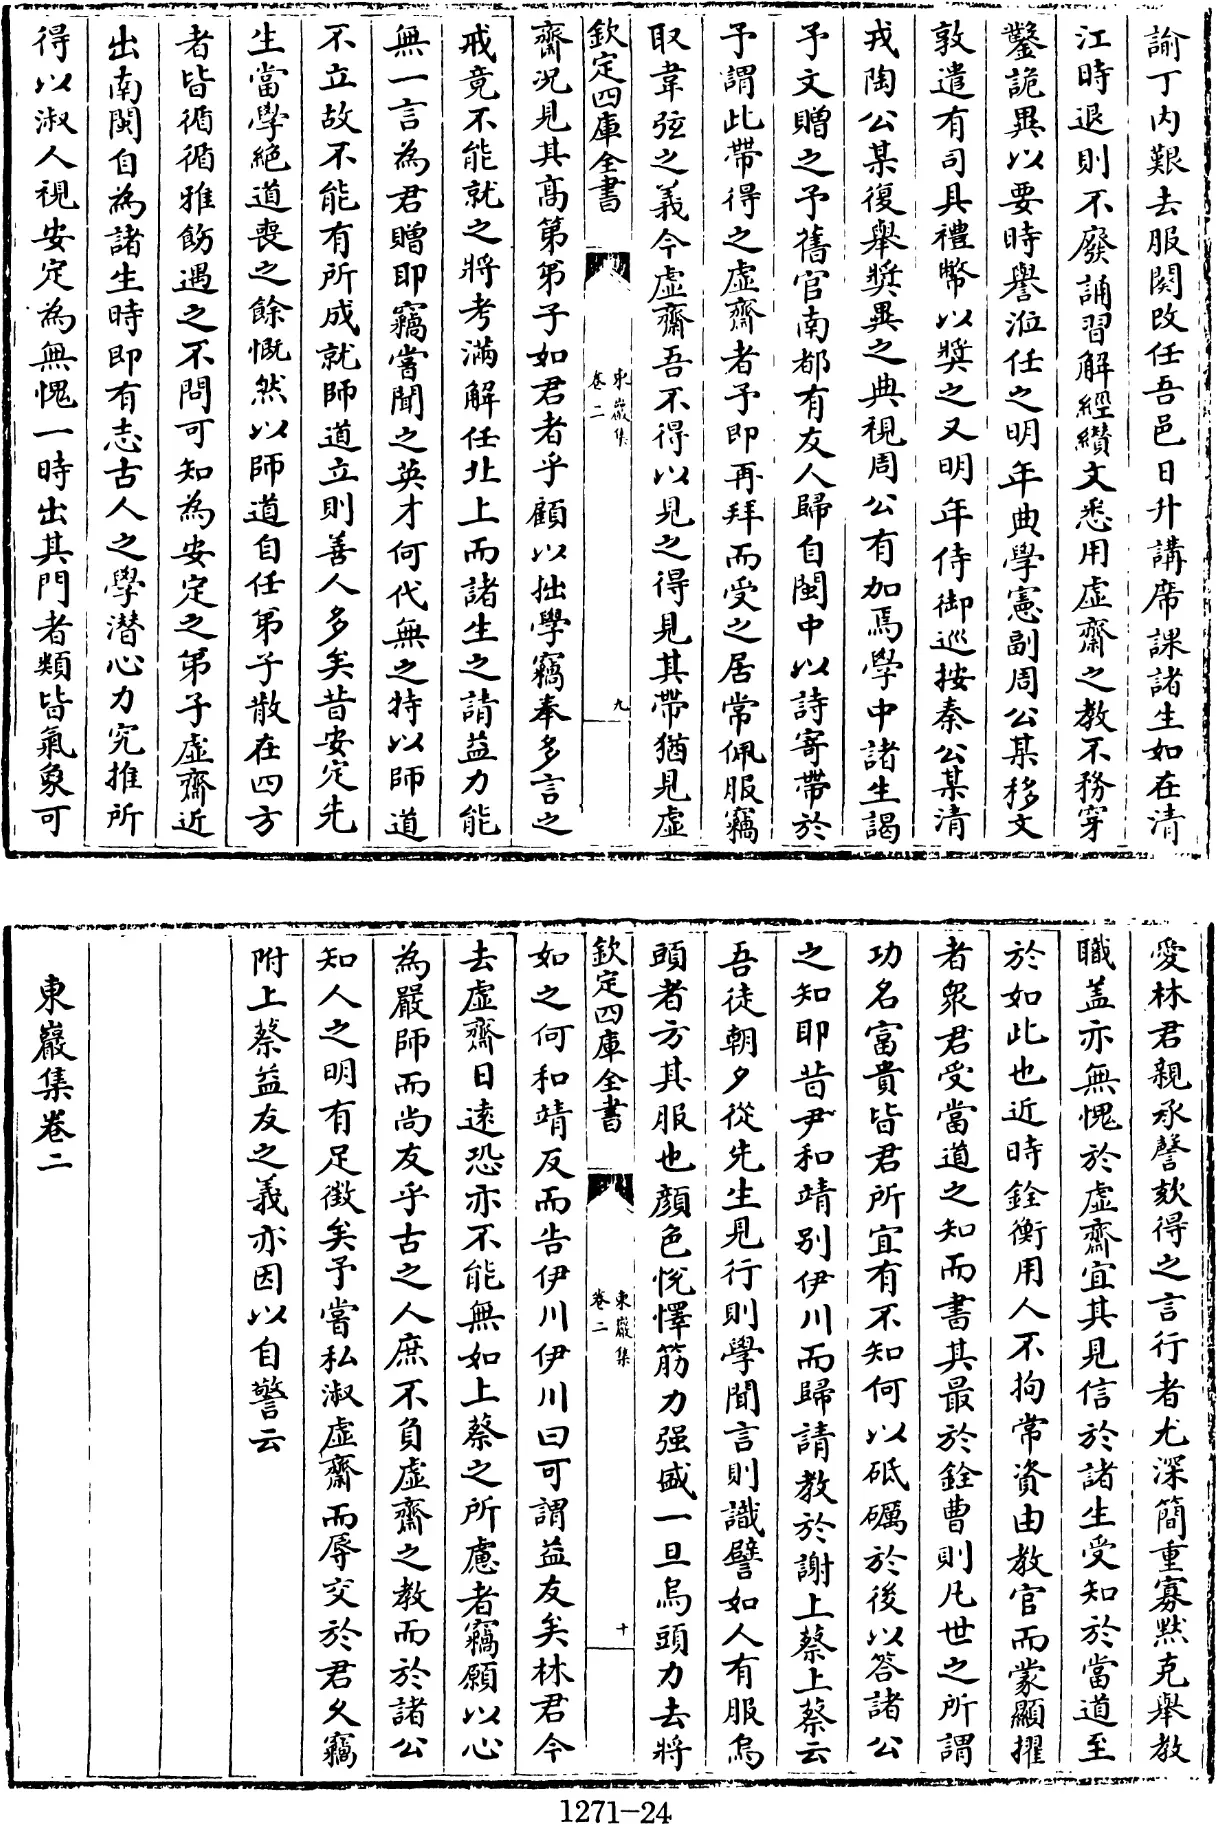 諭丁内艱去服闋改任吾邑日升講席課諸生如在清
江時退則不廢誦習解經纘文悉用虛齋之教不務穿
鑿詭異以要時譽涖任之明年典學憲副周公某移文
敦遣有司具禮幣以奬之又明年侍御巡按秦公某清
戎陶公某復舉奬異之典視周公有加焉學中諸生謁
予文贈之予舊官南都有友人歸自閩中以詩寄帶於
予謂此帶得之虛齋者予即再拜而受之居常佩服竊
取韋弦之義今虛齋吾不得以見之得見其帶猶見虛
欽定四庫全書
東巖集
卷二
九
齋况見其高第弟子如君者乎顧以拙學竊奉多言之
戒竟不能就之將考滿解任北上而諸生之請益力能
無一言為君贈耶竊嘗聞之英才何代無之特以師道
不立故不能有所成就師道立則善人多矣昔安定先
生當學絶道喪之餘慨然以師道自任弟子散在四方
者皆循循雅飭遇之不問可知為安定之弟子虛齋近
出南閩自為諸生時即有志古人之學潜心力究推所
得以淑人視安定為無愧一時出其門者類皆氣象可
愛林君親承謦欬得之言行者尤深簡重寡黙克舉教
職盖亦無愧於虛齋宜其見信於諸生受知於當道至
於如此也近時銓衡用人不拘常資由教官而蒙顯擢
者衆君受當道之知而書其最於銓曹則凡世之所謂
功名富貴皆君所宜有不知何以砥礪於後以答諸公
之知耶昔尹和靖别伊川而歸請教於謝上蔡上蔡云
吾徒朝夕從先生見行則學聞言則識譬如人有服烏
頭者方其服也顔色悦懌筋力强盛一旦烏頭力去將
欽定四庫全書
東巖集
卷二
十
如之何和靖反而告伊川伊川曰可謂益友矣林君今
去虛齋日逺恐亦不能無如上蔡之所慮者竊願以心
為嚴師而尚友乎古之人庶不負虛齋之教而於諸公
知人之明有足徵矣予嘗私淑虛齋而辱交於君久竊
附上蔡益友之義亦因以自警云
東巖集卷二
1271-24